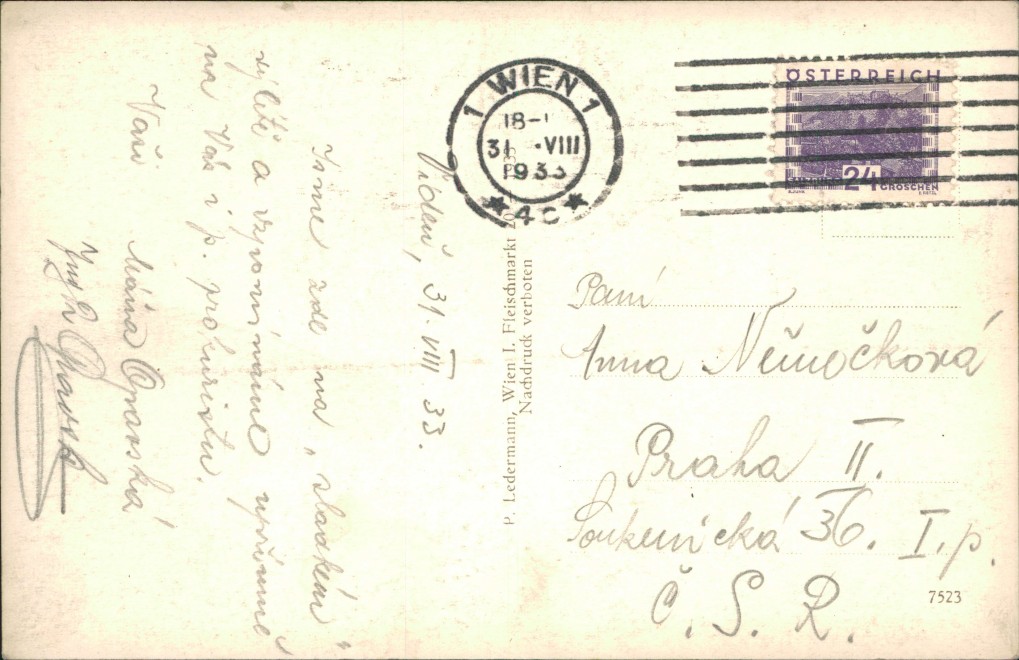 Vídeň, 31. VIII 33.
Jsme zde na „sladkém"
výletě a vzpomínáme upřímně
na Vás i p. prokuristu.
Vaši
Mána
1 WIEN 1
18-1
31 VIII
1933
* 4c *
ÖSTERREICH
24
GROSCHEN
P. Ledermann, Wien I. Fleischmarkt 20
Nachdruck verboten
Paní
Anna Němočková
Praha II.
Soukenická 36. I. p.
Č. S. R.
7523